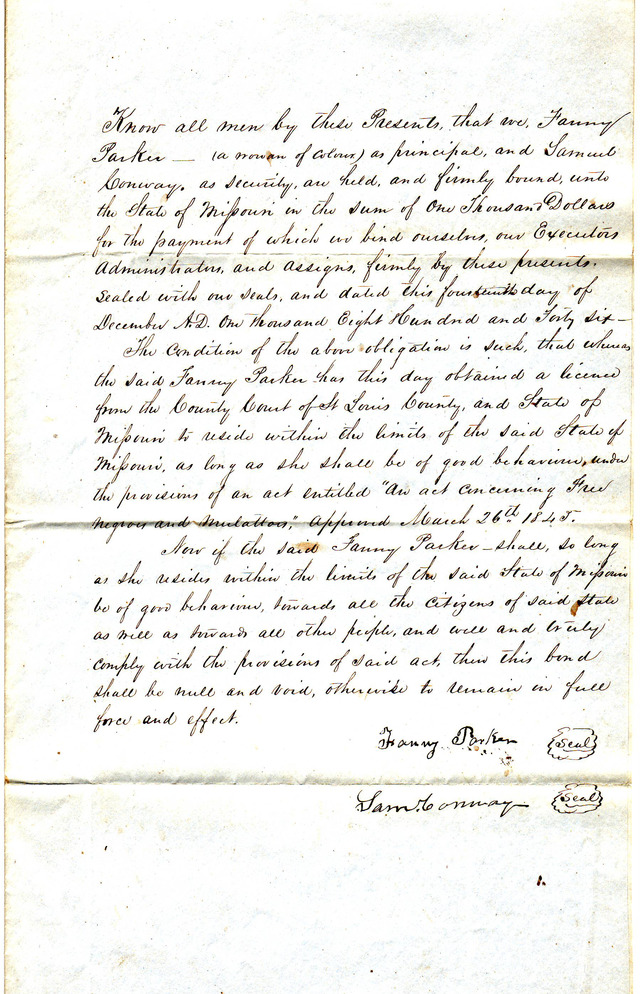 Know all men by these Presents, that we, Fanny
Parker — (a woman of colour) as principal, and Samuel
Conway, as security, are held, and firmly bound, unto
the State of Missouri in the sum of One Thousand Dollars
for the payment of which we bind ourselves, our Executors
Administrators, and assigns, firmly by these presents.
Sealed with our seals, and dated this fourteenth day of
December A.D. One thousand Eight Hundred and Forty six—
The Condition of the above obligation is such, that whereas
the said Fanny Parker has this day obtained a licence
from the County Court of St Louis County, and State of
Missouri to reside within the limits of the said State of
Missouri, as long as she shall be of good behaviour, under
the provisions of an act entitled "An act concerning Free
negroes and mulattoes," Approved March 26th 1845.
Now if the said Fanny Parker — shall, so long
as she resides within the limits of the said State of Missouri
be of good behaviour, towards all the citizens of said State
as well as towards all other people, and well and truly
comply with the provisions of said act, then this bond
shall be null and void, otherwise to remain in full
force and effect.
Fanny Parker Seal
Sam. Conway Seal